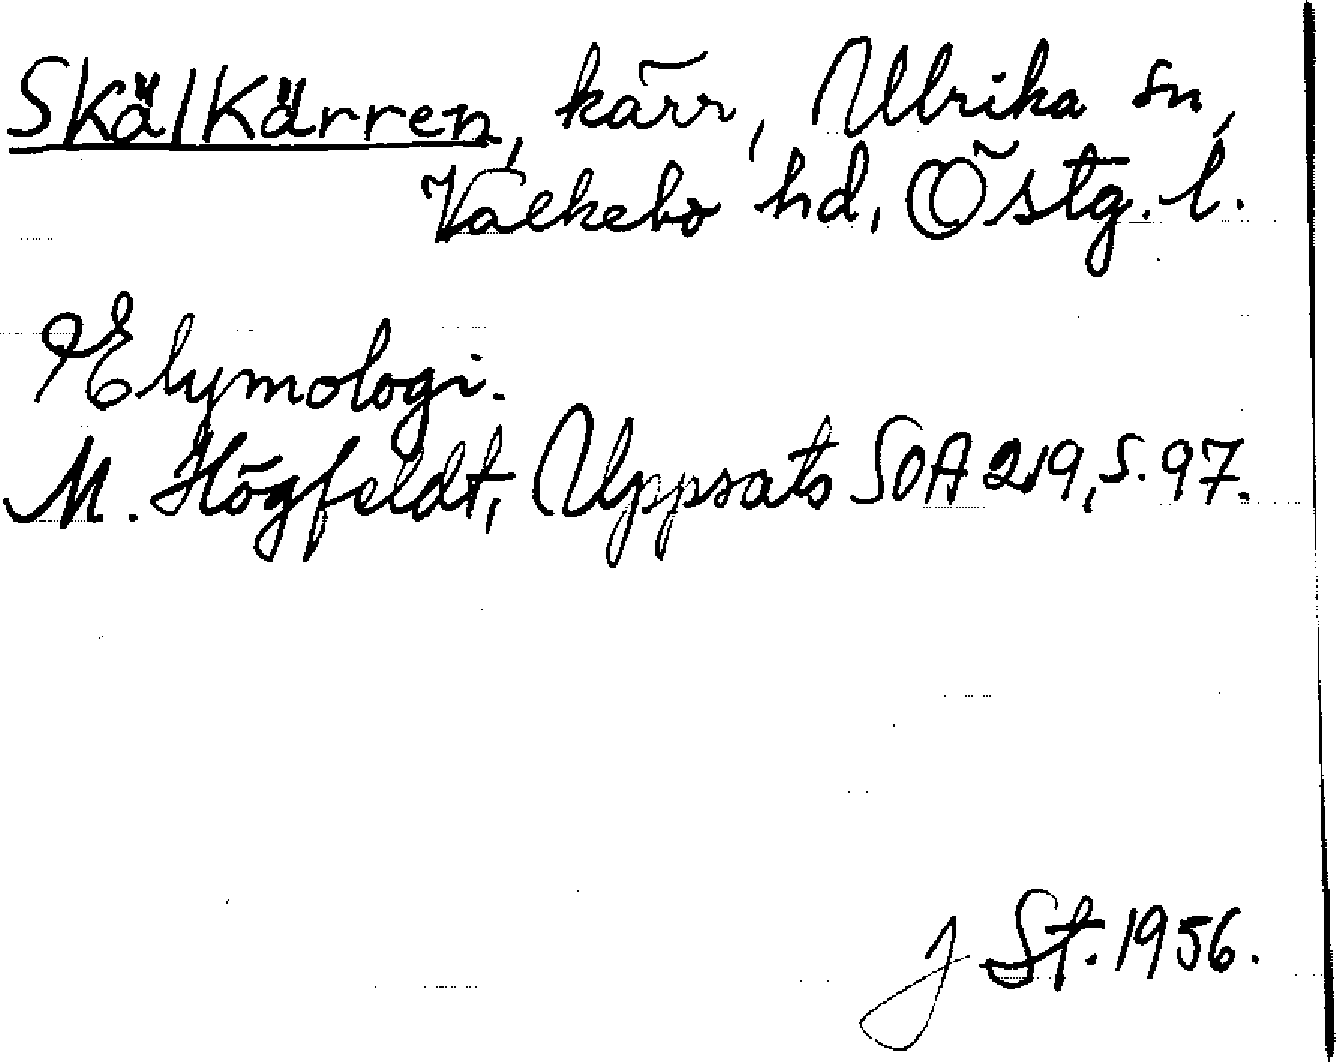 Skälkärren, kärr, Ulrika sn,
Valkebo hd, Östg. l.
Etymologi.
M. Högfeldt, Uppsats SOA 219, s. 97.
J St. 1956.